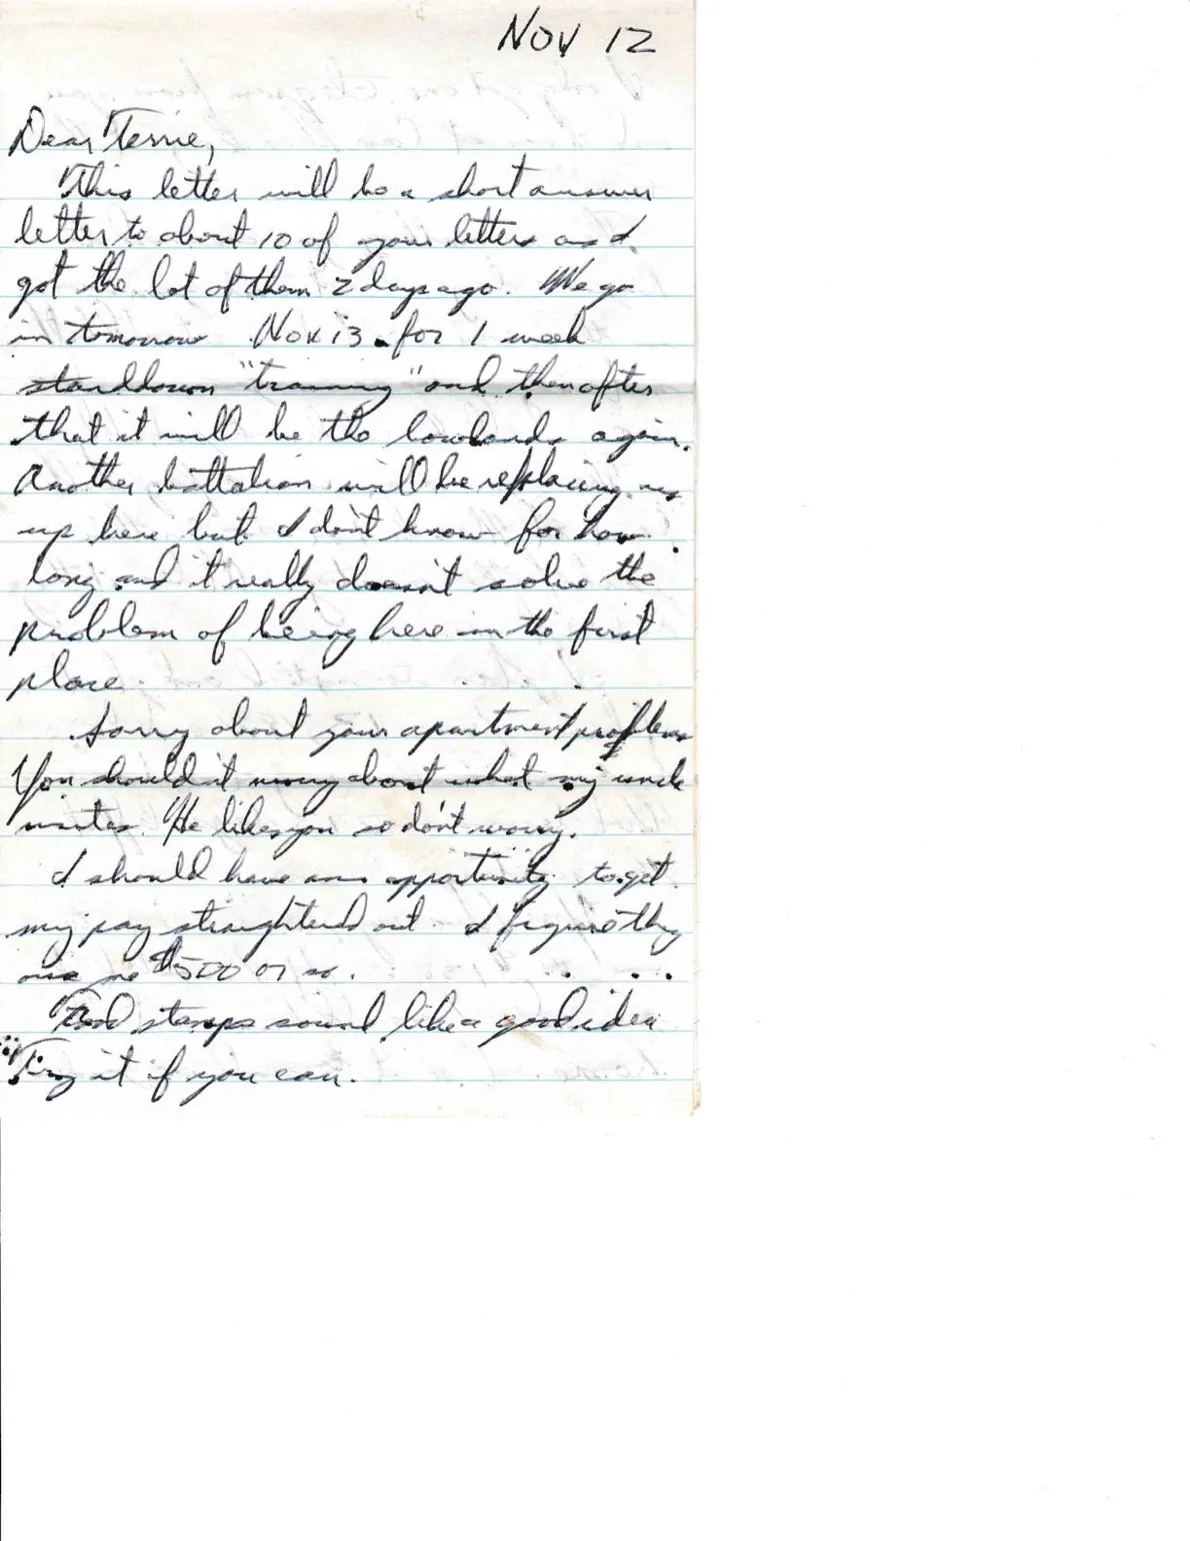 Nov 12
Dear Terrie,
This letter will be a short answer
letter to about 10 of your letters as I
got the lot of them 2 days ago. We go
in tomorrow Nov 13. for 1 week
standdown "training" and then after
that it will be the lowlands again.
Another battalion will be replacing us
up here but I don't know for how
long and it really doesn't solve the
problem of being here in the first
place.
Sorry about your apartment problems
You shouldn't worry about what my uncle
writes. He likes you so don't worry.
I should have an opportunity to get
my pay straightened out. I figure they
owe me $500 or so.
Food stamps sound like a good idea
Try it if you can.